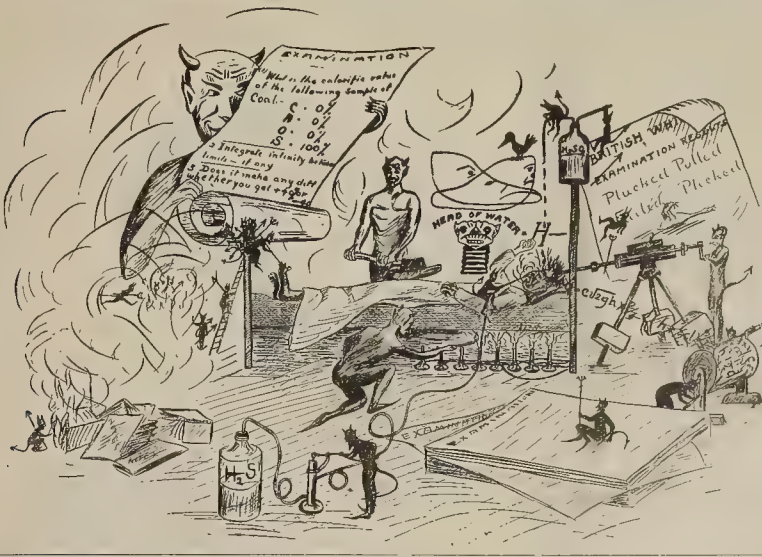 EXAMINATION
What is the calorific value
of the following sample of
Coal:-
C = 0%
A = 0%
O = 0%
S = 100%
2 Integrate infinity between
limits - if any
3 Does it make any diff
whether you get + for
HEAD OF WATER
H2SO4
BRITISH WH
EXAMINATION RESULTS
Plucked Pulled
Plucked
c√2gh
H2S
EXAMINATION
EXAMINATION